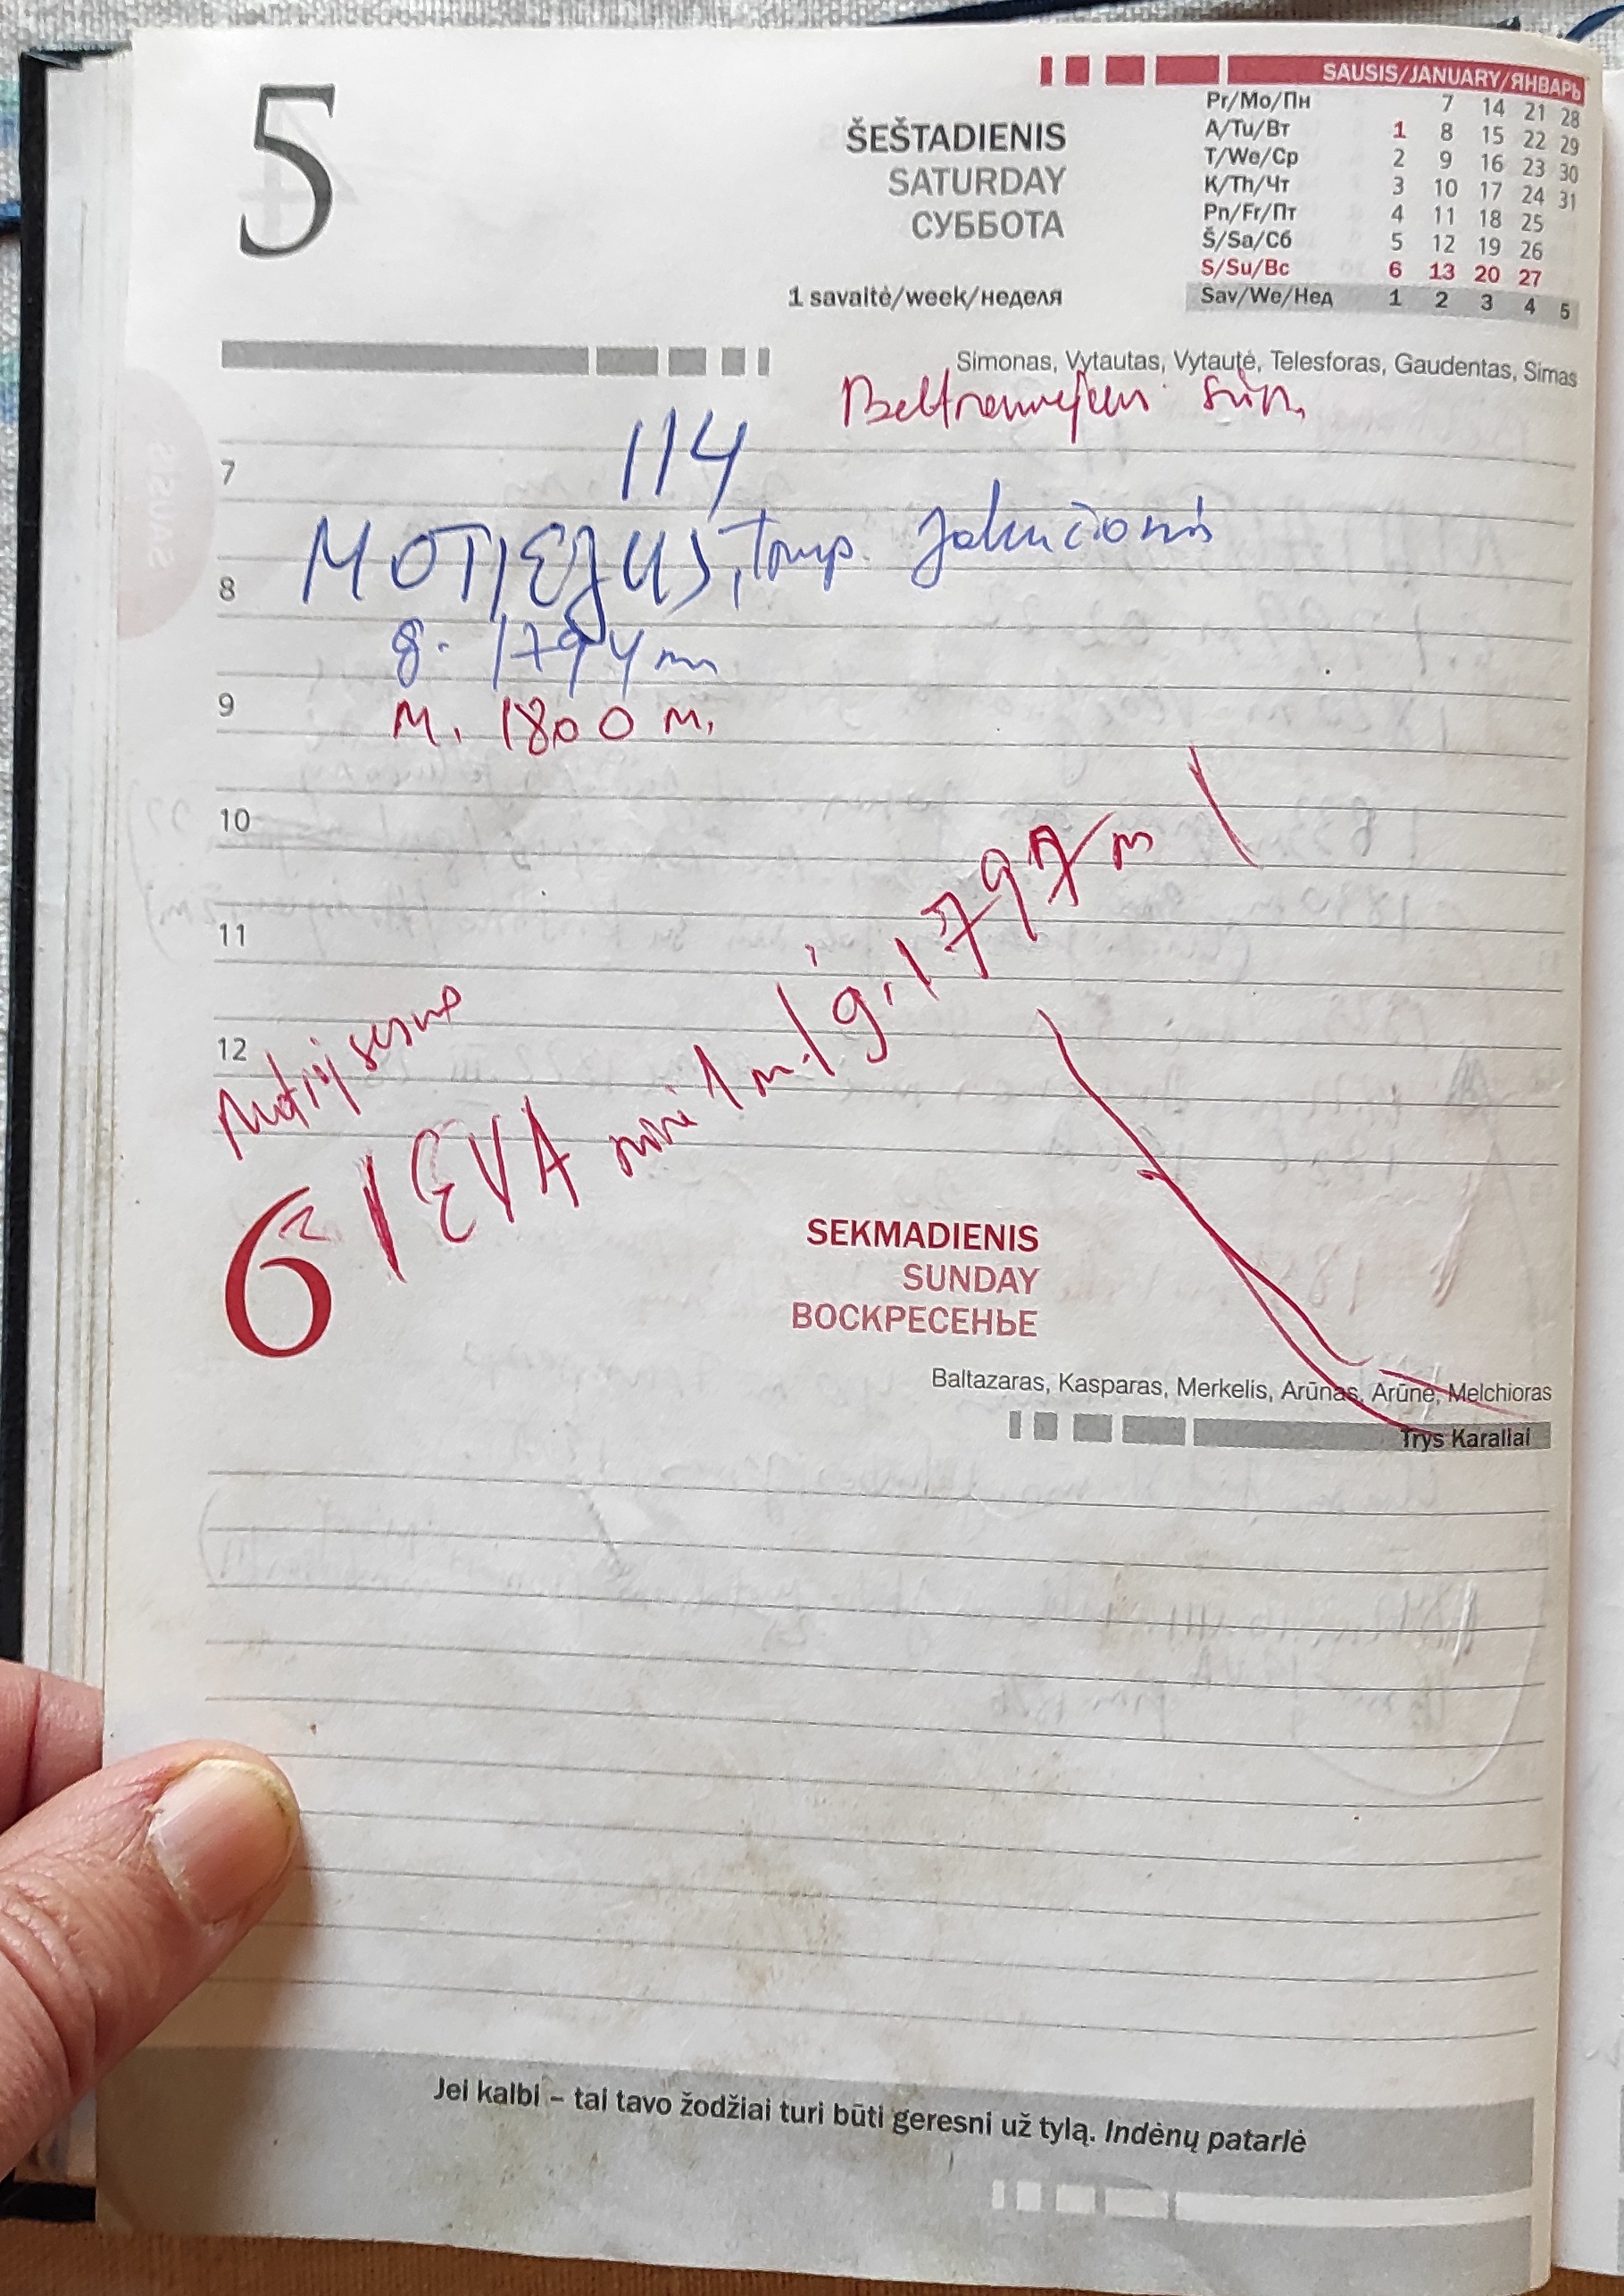 5
ŠEŠTADIENIS
SATURDAY
СУББОТА
1 savaitė/week/неделя
SAUSIS/JANUARY/ЯНВАРЬ
Pr/Mo/Пн 7 14 21 28
A/Tu/Вт 1 8 15 22 29
T/We/Ср 2 9 16 23 30
K/Th/Чт 3 10 17 24 31
Pn/Fr/Пт 4 11 18 25
Š/Sa/Сб 5 12 19 26
S/Su/Вс 6 13 20 27
Sav/We/Нед 1 2 3 4 5
Simonas, Vytautas, Vytautė, Telesforas, Gaudentas, Simas
sūn.
114
7
MOTIEJUS, Jakučionis
8
g. 1794 m
9
m. 1800 m.
10
11
12
IEVA mirė 1 m. g. 1797 m
6
SEKMADIENIS
SUNDAY
ВОСКРЕСЕНЬЕ
Baltazaras, Kasparas, Merkelis, Arūnas, Arūnė, Melchioras
Trys Karaliai
Jei kalbi – tai tavo žodžiai turi būti geresni už tylą. Indėnų patarlė